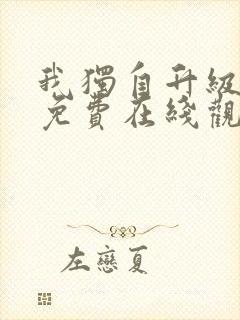 我獨自升級
免費在綫觀
左戀夏